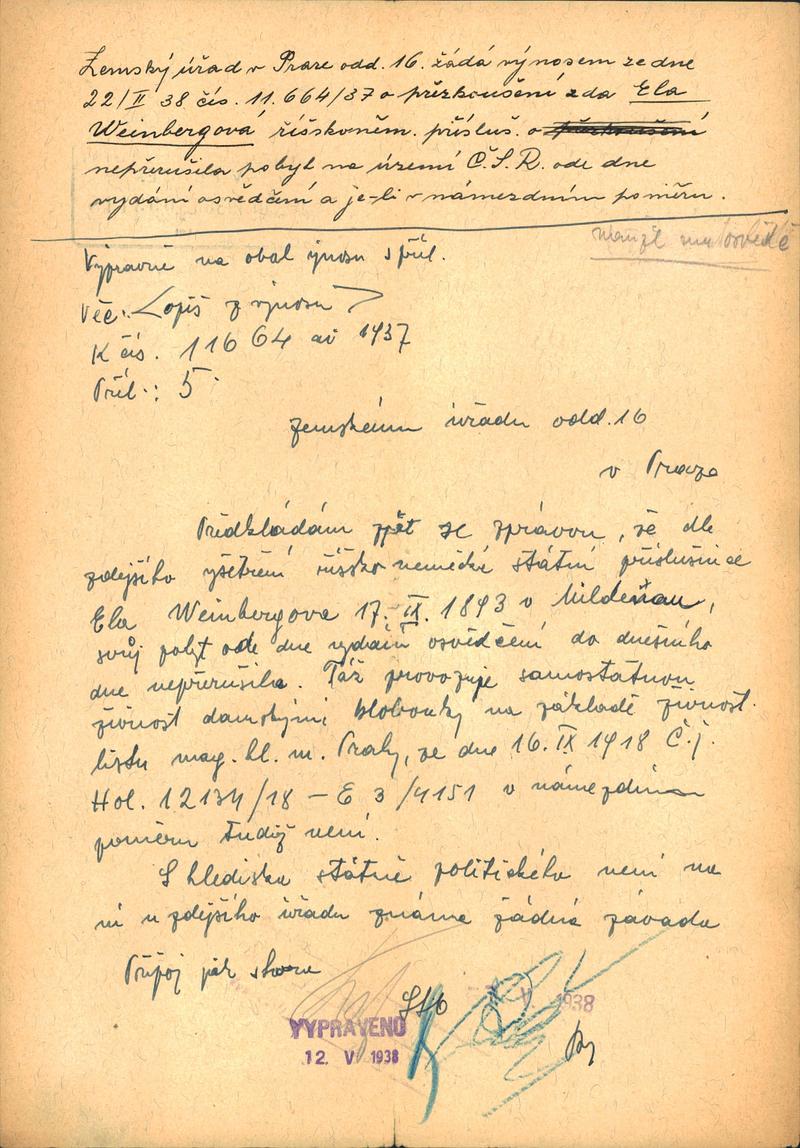 Zemský úřad v Praze odd. 16. žádá výnosem ze dne
22/II 38 čís. 11.664/37 o přezkoušení zda Ela
Weinbergová říšskoněm. přísluš. o přezkoušení
nepřerušila pobyt na území Č.S.R. ode dne
vydání osvědčení a je-li v námezdním poměru.
Výpravně na obal výnosu s příl.
Věc: Opis z výnosu
K čís. 11664 ai 1937
Příl.: 5
zemskému úřadu odd. 16
v Praze
Předkládám zpět se zprávou, že dle
zdejšího vyšetření říšsko německá státní příslušnice
Ela Weinbergova 17. IX. 1893 v Mildenau,
svůj pobyt ode dne vydání osvědčení do dnešního
dne nepřerušila. Táž provozuje samostatnou
živnost damskými klobouky na základě živnost.
listu mag. hl. m. Prahy, ze dne 16. IX 1918 Č.j.
Hol. 12134/18 – E 3/4151 v námezdním
poměru tudíž není.
S hlediska státně politického není na
ni u zdejšího úřadu známa žádná závada
Připoj jak shora
VYPRAVENO
12. V. 1938
V. 1938